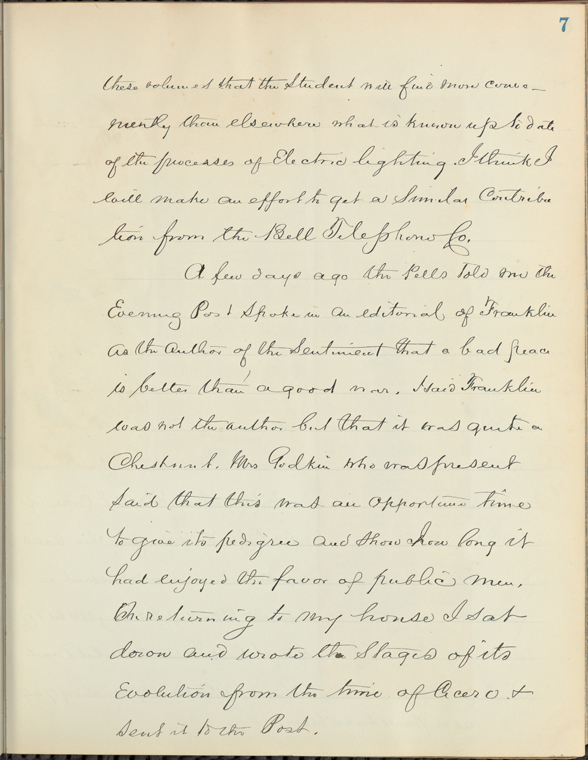 7
these volumes that the Student will find more conve-
niently than elsewhere what is known up to date
of the processes of Electric lighting. I think I
will make an effort to get a Similar Contribu
tion from the Bell Telephone Co.
A few days ago the Pells told me the
Evening Post Spoke in an editorial of Franklin
as the author of the Sentiment that a bad peace
is better than a good war. I said Franklin
was not the author but that it was quite a
Chestnut. Mrs Godkin who was present
said that this was an opportune time
to give its pedigree and show how long it
had enjoyed the favor of public men.
On returning to my house I sat
down and wrote the Stages of its
Evolution from the time of Cicero &
sent it to the Post.